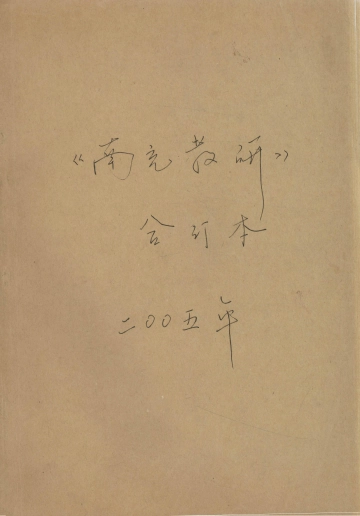 《南充教研》
合订本
二〇〇五年